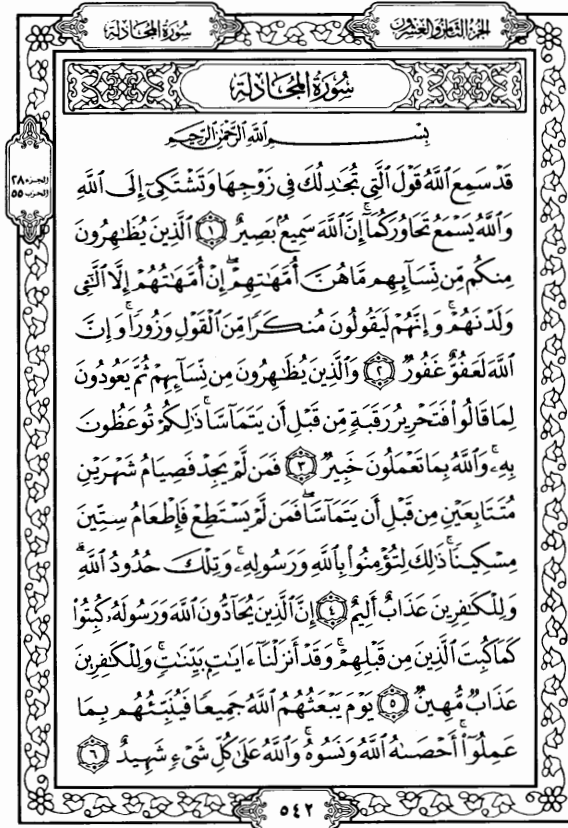 الجزء الثامن والعشرون
سورة المجادلة
سُورَةُ المُجَادلة
بِسْمِ ٱللَّهِ ٱلرَّحْمَٰنِ ٱلرَّحِيمِ
الجزء ٢٨
الحزب ٥٥
قَدْ سَمِعَ ٱللَّهُ قَوْلَ ٱلَّتِي تُجَٰدِلُكَ فِي زَوْجِهَا وَتَشْتَكِيٓ إِلَى ٱللَّهِ
وَٱللَّهُ يَسْمَعُ تَحَاوُرَكُمَآ ۚ إِنَّ ٱللَّهَ سَمِيعٌۢ بَصِيرٌ ١ ٱلَّذِينَ يُظَٰهِرُونَ
مِنكُم مِّن نِّسَآئِهِم مَّا هُنَّ أُمَّهَٰتِهِمْ ۖ إِنْ أُمَّهَٰتُهُمْ إِلَّا ٱلَّٰٓـِٔي
وَلَدْنَهُمْ ۚ وَإِنَّهُمْ لَيَقُولُونَ مُنكَرًا مِّنَ ٱلْقَوْلِ وَزُورًا ۚ وَإِنَّ
ٱللَّهَ لَعَفُوٌّ غَفُورٌ ٢ وَٱلَّذِينَ يُظَٰهِرُونَ مِن نِّسَآئِهِمْ ثُمَّ يَعُودُونَ
لِمَا قَالُوا۟ فَتَحْرِيرُ رَقَبَةٍ مِّن قَبْلِ أَن يَتَمَآسَّا ۚ ذَٰلِكُمْ تُوعَظُونَ
بِهِۦ ۚ وَٱللَّهُ بِمَا تَعْمَلُونَ خَبِيرٌ ٣ فَمَن لَّمْ يَجِدْ فَصِيَامُ شَهْرَيْنِ
مُتَتَابِعَيْنِ مِن قَبْلِ أَن يَتَمَآسَّا ۖ فَمَن لَّمْ يَسْتَطِعْ فَإِطْعَامُ سِتِّينَ
مِسْكِينًا ۚ ذَٰلِكَ لِتُؤْمِنُوا۟ بِٱللَّهِ وَرَسُولِهِۦ ۚ وَتِلْكَ حُدُودُ ٱللَّهِ ۗ
وَلِلْكَٰفِرِينَ عَذَابٌ أَلِيمٌ ٤ إِنَّ ٱلَّذِينَ يُحَآدُّونَ ٱللَّهَ وَرَسُولَهُۥ كُبِتُوا۟
كَمَا كُبِتَ ٱلَّذِينَ مِن قَبْلِهِمْ ۚ وَقَدْ أَنزَلْنَآ ءَايَٰتٍۭ بَيِّنَٰتٍ ۚ وَلِلْكَٰفِرِينَ
عَذَابٌ مُّهِينٌ ٥ يَوْمَ يَبْعَثُهُمُ ٱللَّهُ جَمِيعًا فَيُنَبِّئُهُم بِمَا
عَمِلُوٓا۟ ۚ أَحْصَىٰهُ ٱللَّهُ وَنَسُوهُ ۚ وَٱللَّهُ عَلَىٰ كُلِّ شَيْءٍ شَهِيدٌ ٦
٥٤٢